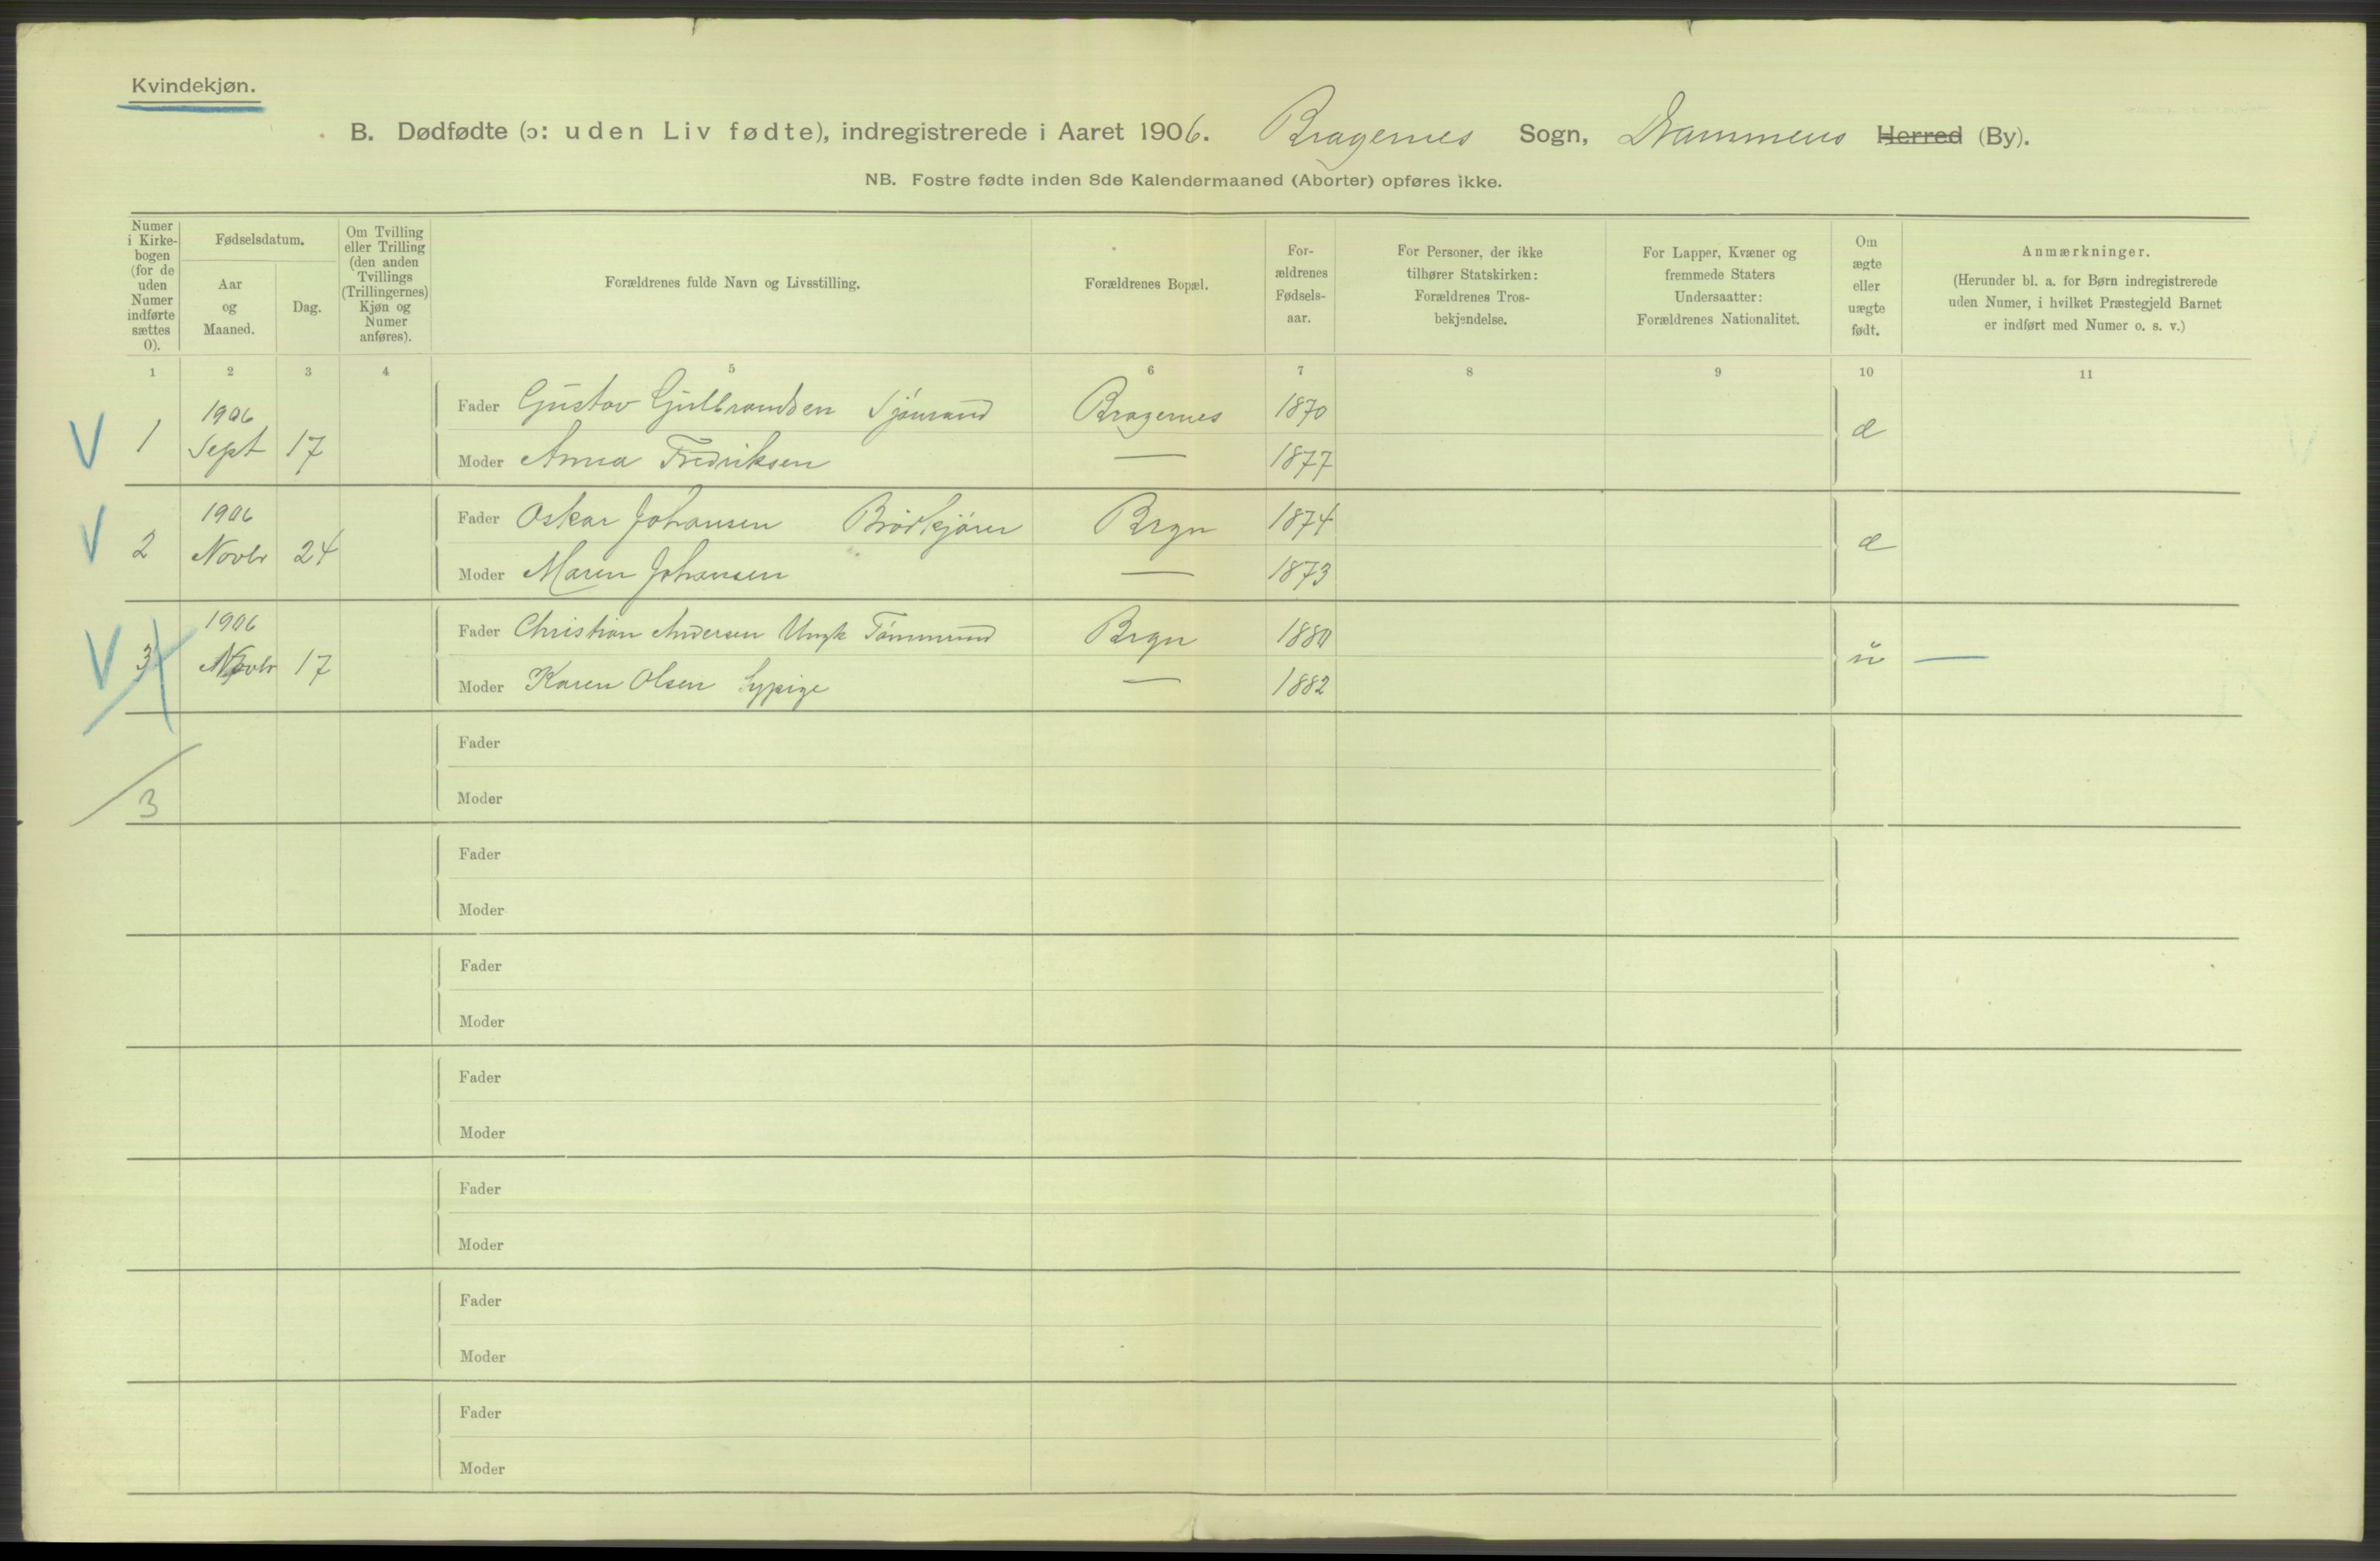 Kvindekjøn.
B. Dødfødte (ɔ: uden Liv fødte), indregistrerede i Aaret 1906. Bragernes Sogn, Drammens Herred (By).
NB. Fostre fødte inden 8de Kalendermaaned (Aborter) opføres ikke.
Numer i Kirkebogen (for de uden Numer indførte sættes 0).
Fødselsdatum.
Aar og Maaned.
Dag.
Om Tvilling eller Trilling (den anden Tvillings (Trillingernes) Kjøn og Numer anføres).
Forældrenes fulde Navn og Livsstilling.
Forældrenes Bopæl.
Forældrenes Fødselsaar.
For Personer, der ikke tilhører Statskirken: Forældrenes Trosbekjendelse.
For Lapper, Kvæner og fremmede Staters Undersaatter: Forældrenes Nationalitet.
Om ægte eller uægte født.
Anmærkninger.
(Herunder bl. a. for Børn indregistrerede uden Numer, i hvilket Præstegjeld Barnet er indført med Numer o. s. v.)
1 2 3 4 5 6 7 8 9 10 11
V 1 1906 Sept 17 Fader Gustav Gulbrandsen Sjømand Bragernes 1870 æ
Moder Anna Fredriksen — 1877
V 2 1906 Novbr 24 Fader Oskar Johansen Brødkjører Brgn 1874 æ
Moder Maren Johansen — 1873
V 3 1906 Novbr 17 Fader Christian Andersen Ungk Tømmermd Brgn 1880 u —
Moder Karen Olsen Sypige — 1882
Fader
3 Moder
Fader
Moder
Fader
Moder
Fader
Moder
Fader
Moder
Fader
Moder
Fader
Moder